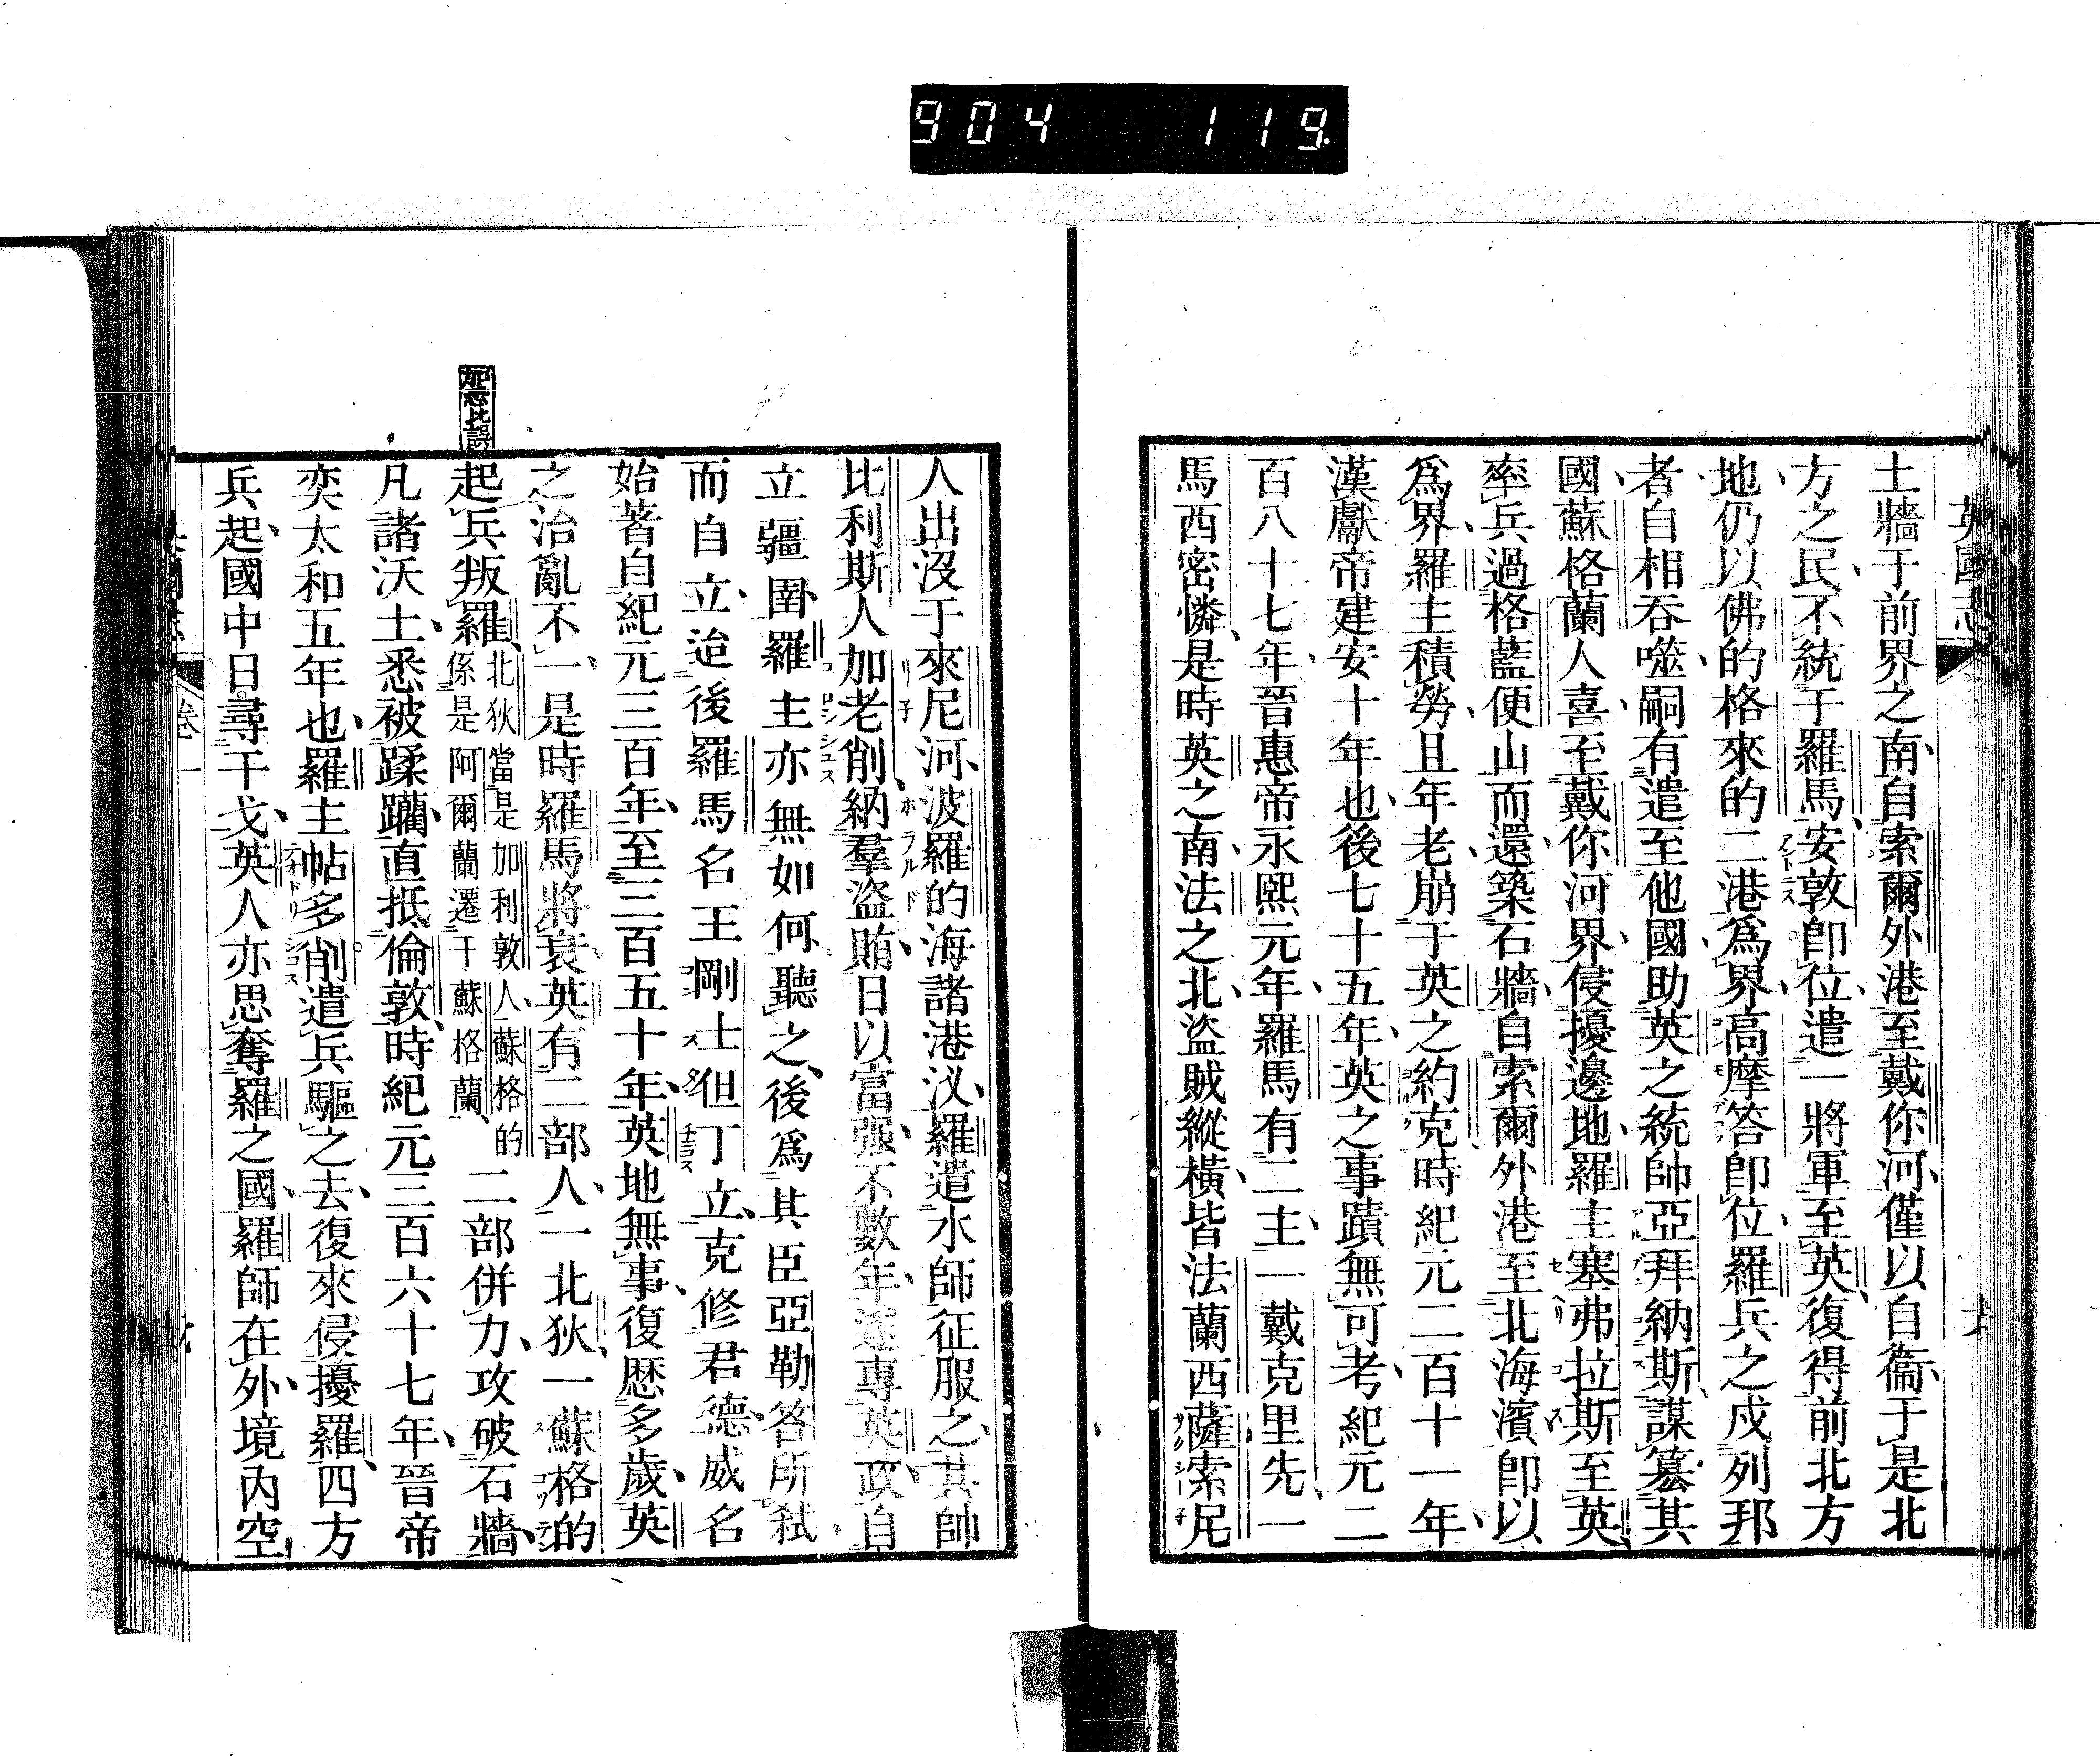 904 119
英國志
土牆于前界之南自索爾外港至戴你河僅以自衞于是北
方之民不統于羅馬安敦卽位遣一將軍至英復得前北方
地仍以佛的格來的二港爲界高摩答卽位羅兵之戍列邦
者自相吞噬嗣有遣至他國助英之統帥亞拜納斯謀簒其
國蘇格蘭人喜至戴你河界侵擾邊地羅主塞弗拉斯至英
率兵過格藍便山而還築石牆自索爾外港至北海濱卽以
爲界羅主積勞且年老崩于英之約克時紀元二百十一年
漢獻帝建安十年也後七十五年英之事蹟無可考紀元二
百八十七年晉惠帝永熙元年羅馬有二主一戴克里先一
馬西密憐是時英之南法之北盜賊縱橫皆法蘭西薩索尼
人出沒于來尼河波羅的海諸港汊羅遣水師征服之其帥
比利斯人加老削納羣盜賄日以富强不數年遂專英政自
立疆圉羅主亦無如何聽之後爲其臣亞勒答所弑
而自立迨後羅馬名王剛士但丁立克修君德威名
始著自紀元三百年至三百五十年英地無事復歷多歲英
之治亂不一是時羅馬將衰英有二部人一北狄一蘇格的
起兵叛羅北狄當是加利敦人蘇格的係是阿爾蘭遷于蘇格蘭二部併力攻破石牆
凡諸沃土悉被蹂躪直抵倫敦時紀元三百六十七年晉帝
奕太和五年也羅主帖多削遣兵驅之去復來侵擾羅四方
兵起國中日尋干戈英人亦思奪羅之國羅師在外境內空
卷一